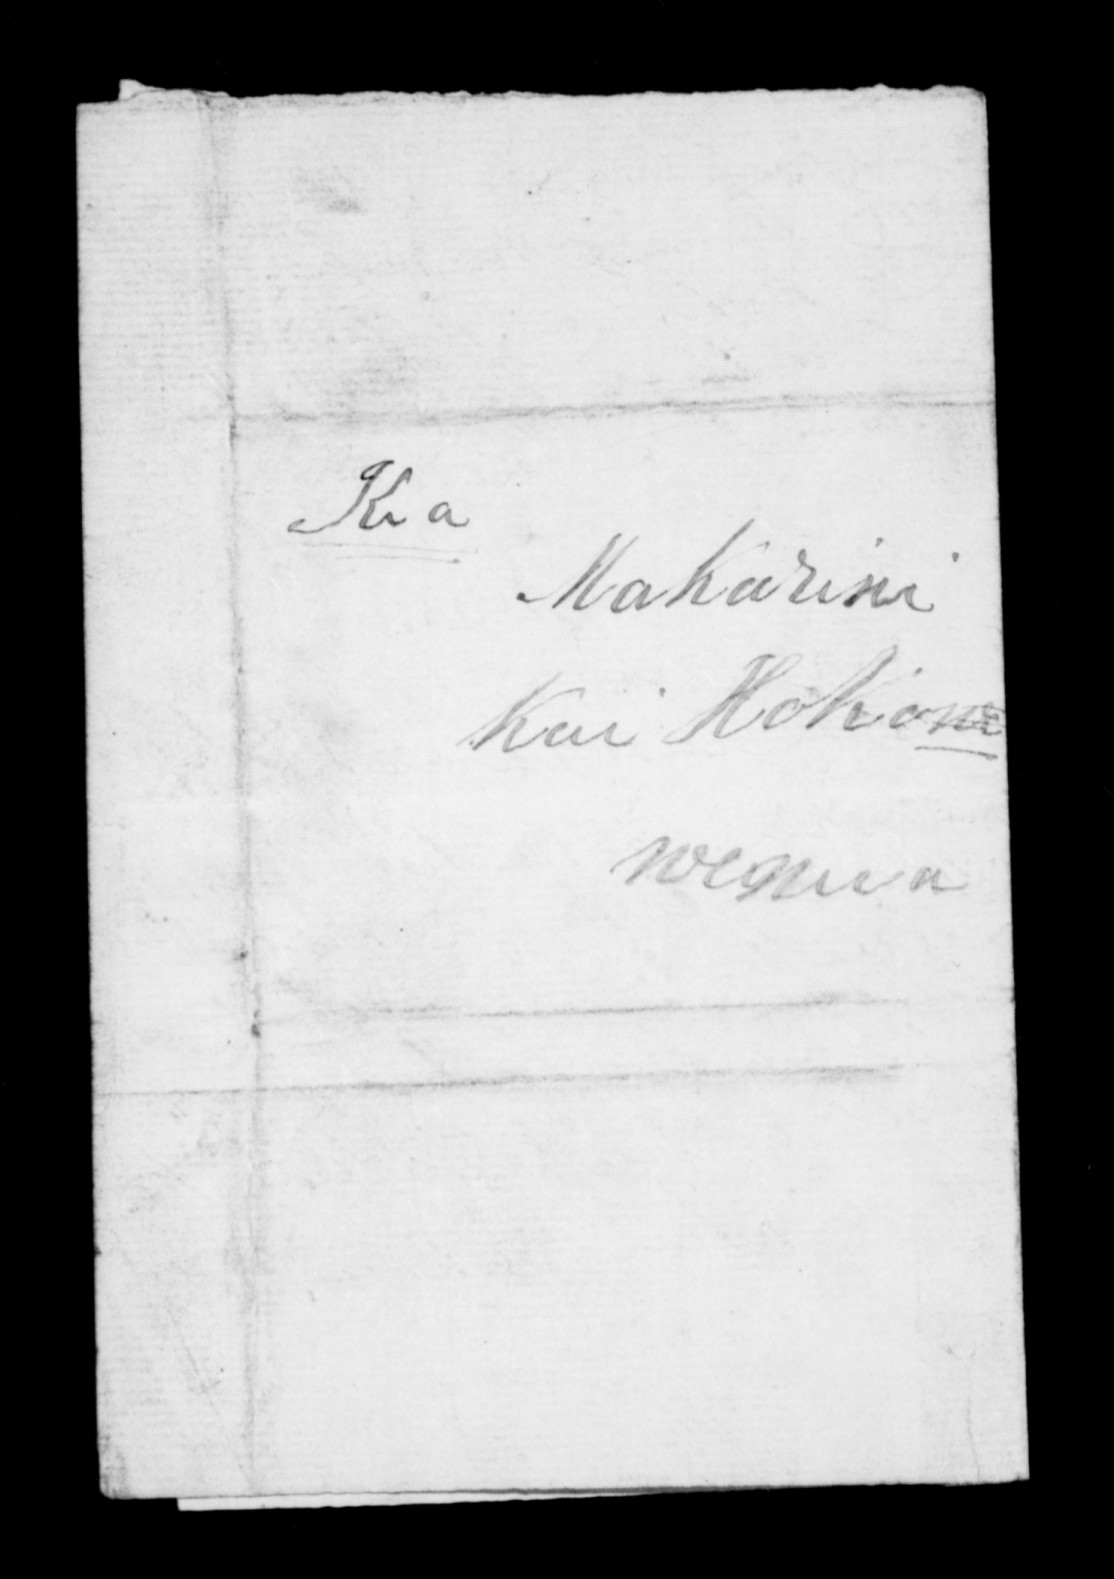 Kia
Makarini
Kai Hokowe
wenua